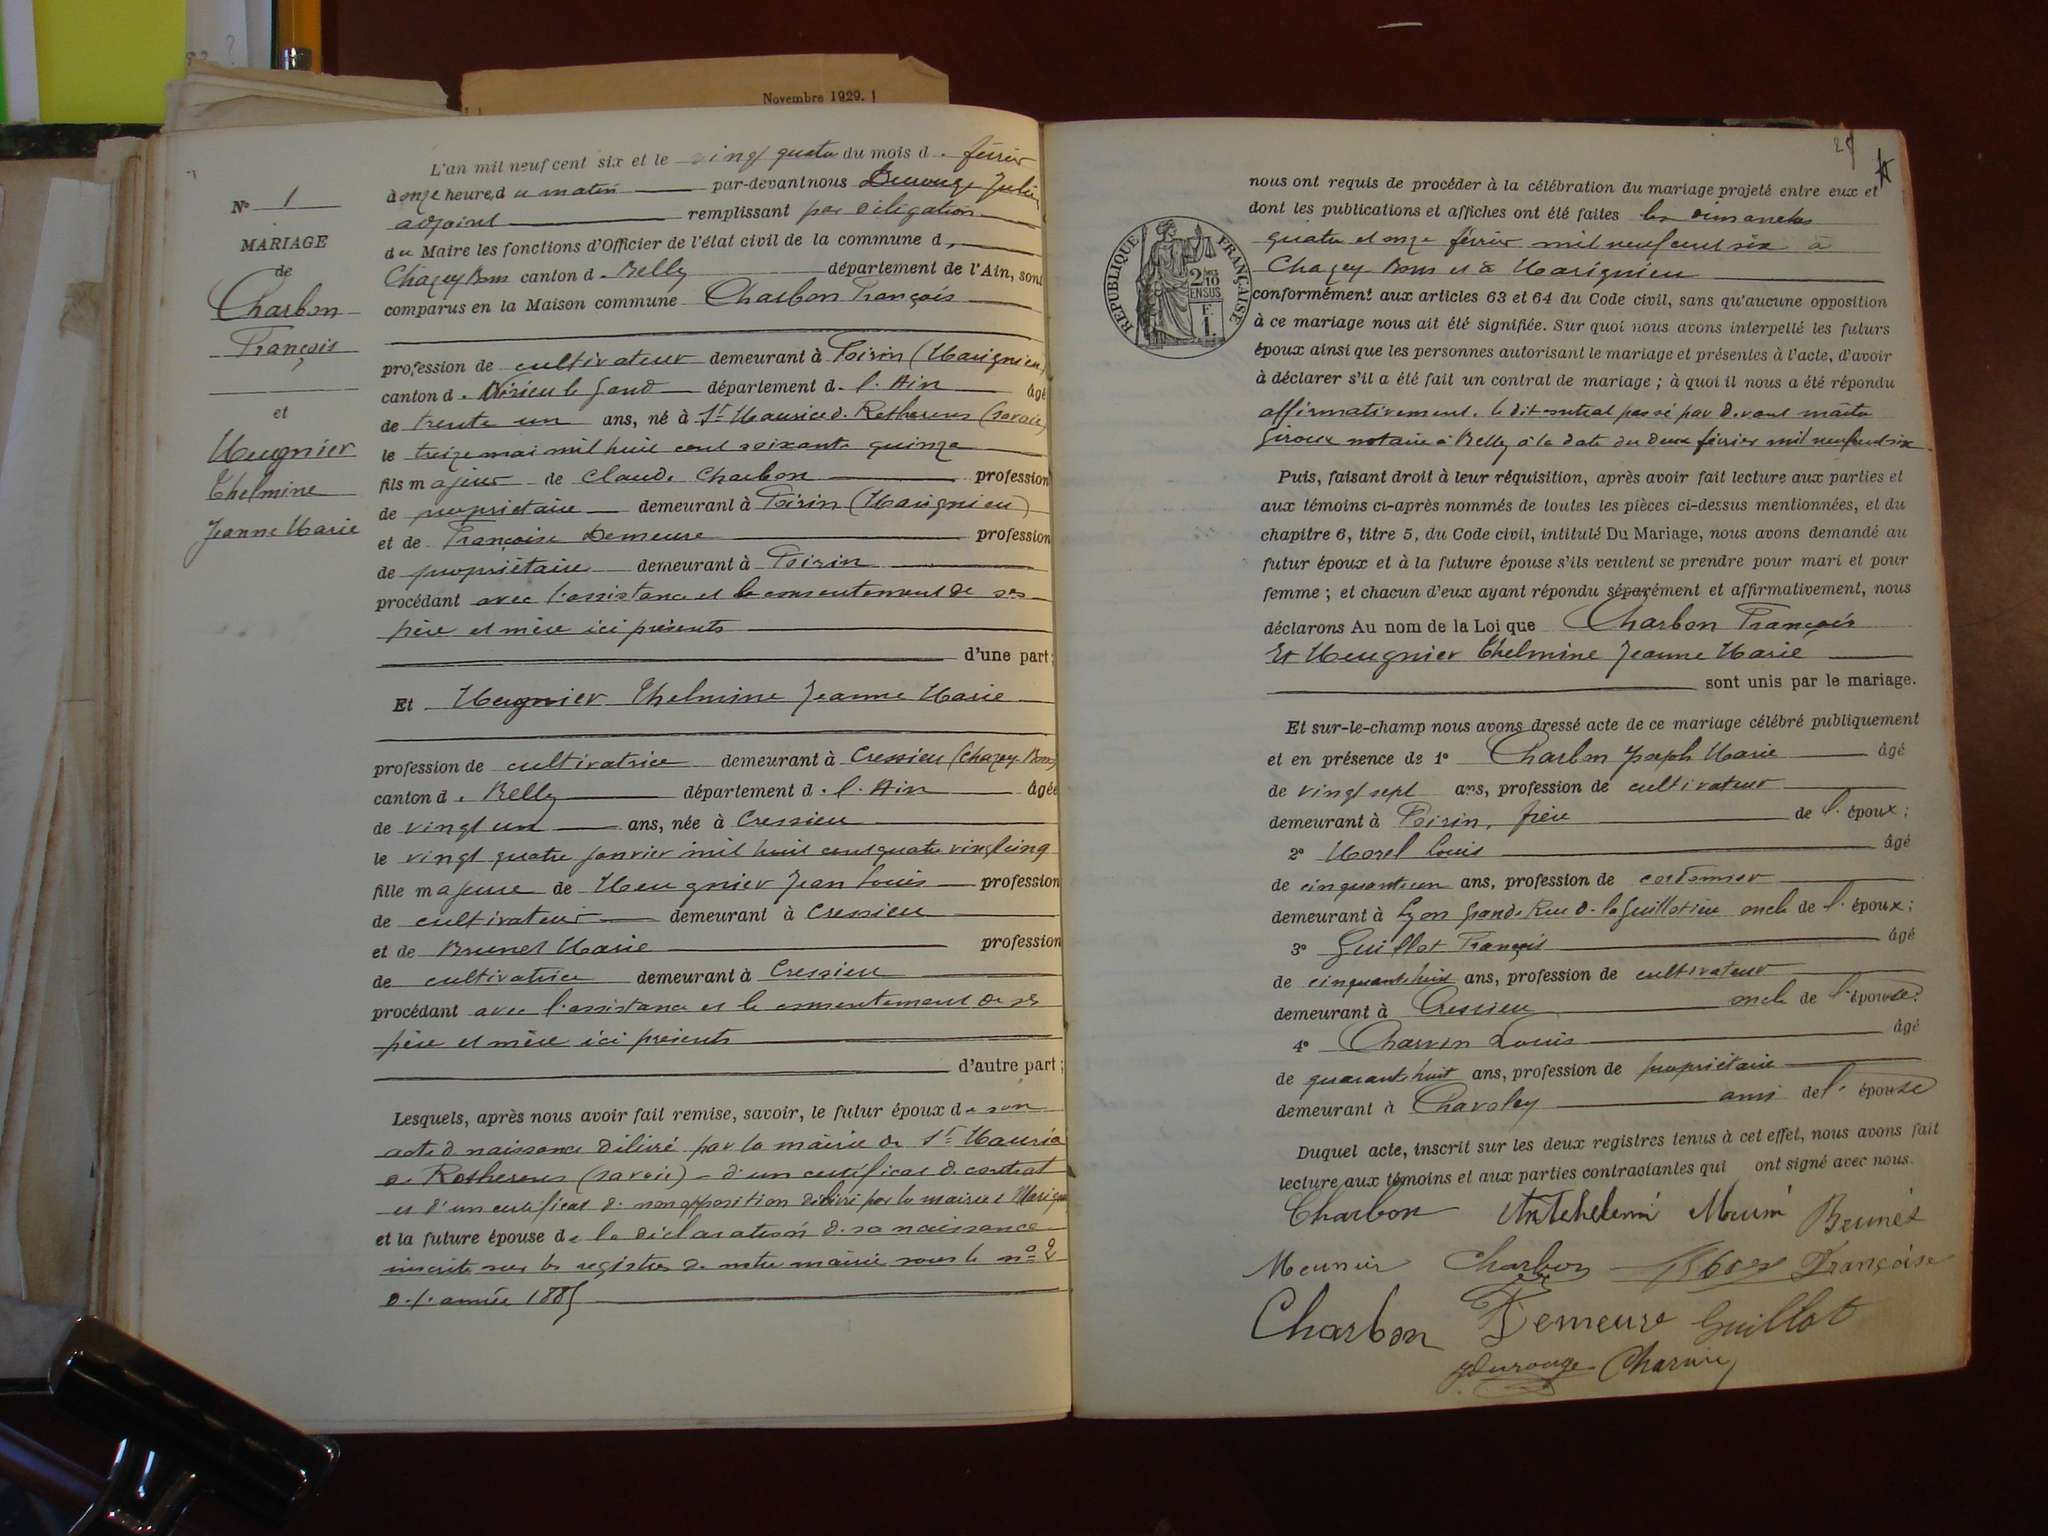 Novembre 1929.
L'an mil neuf cent six et le vingt quatre du mois d. février
à onze heures du matin par-devant nous Durouge Julien
adjoint remplissant par délégation
du Maire les fonctions d'Officier de l'état civil de la commune d.
Chazey Bons canton d. Belley département de l'Ain, sont
comparus en la Maison commune Charbon François
N° 1
MARIAGE
de
Charbon
François
et
Meugnier
Thelmine
Jeanne Marie
profession de cultivateur demeurant à Poirin (Marignieu)
canton d. Virieu le Grand département d. l'Ain âgé
de trente un ans, né à St Maurice d. Rotherens (savoie)
le treize mai mil huit cent soixante quinze
fils majeur de Claude Charbon profession
de propriétaire demeurant à Poirin (Marignieu)
et de Françoise Demeure profession
de propriétaire demeurant à Poirin
procédant avec l'assistance et le consentement de ses
père et mère ici présents
d'une part;
Et Meugnier Thelmine Jeanne Marie
profession de cultivatrice demeurant à Cressieu (Chazey Bons)
canton d. Belley département d. l'Ain âgée
de vingt un ans, née à Cressieu
le vingt quatre janvier mil huit cent quatre vingt cinq
fille majeure de Meugnier Jean Louis profession
de cultivateur demeurant à Cressieu
et de Brunet Marie profession
de cultivatrice demeurant à Cressieu
procédant avec l'assistance et le consentement de ses
père et mère ici présents
d'autre part;
Lesquels, après nous avoir fait remise, savoir, le futur époux de son
acte d. naissance délivré par la mairie de St Maurice
de Rotherens (savoie) - d'un certificat d. contrat
et d'un certificat d. non opposition délivré par la mairie d. Marignieu
et la future épouse de la déclaration d. sa naissance
inscrite sur les registres de notre mairie sous le n° 2
d. l'année 1885
nous ont requis de procéder à la célébration du mariage projeté entre eux et
dont les publications et affiches ont été faites les dimanches
quatre et onze février mil neuf cent six à
Chazey Bons et à Marignieu
RÉPUBLIQUE FRANÇAISE
2/10 EN SUS
F. 1.
conformément aux articles 63 et 64 du Code civil, sans qu'aucune opposition
à ce mariage nous ait été signifiée. Sur quoi nous avons interpellé les futurs
époux ainsi que les personnes autorisant le mariage et présentes à l'acte, d'avoir
à déclarer s'il a été fait un contrat de mariage ; à quoi il nous a été répondu
affirmativement. le dit contrat passé par devant maître
Giroux notaire à Belley à la date du deux février mil neuf cent six
Puis, faisant droit à leur réquisition, après avoir fait lecture aux parties et
aux témoins ci-après nommés de toutes les pièces ci-dessus mentionnées, et du
chapitre 6, titre 5, du Code civil, intitulé Du Mariage, nous avons demandé au
futur époux et à la future épouse s'ils veulent se prendre pour mari et pour
femme ; et chacun d'eux ayant répondu séparément et affirmativement, nous
déclarons Au nom de la Loi que Charbon François
Et Meugnier Thelmine Jeanne Marie
sont unis par le mariage.
Et sur-le-champ nous avons dressé acte de ce mariage célébré publiquement
et en présence de 1° Charbon Joseph Marie âgé
de vingt sept ans, profession de cultivateur
demeurant à Poirin, frère de l'époux ;
2° Morel Louis âgé
de cinquante un ans, profession de cordonnier
demeurant à Lyon Grande Rue d. la Guillotière oncle de l'époux ;
3° Guillot François âgé
de cinquante huit ans, profession de cultivateur
demeurant à Cressieu oncle de l'épouse.
4° Charvin Louis âgé
de quarante huit ans, profession de propriétaire
demeurant à Chavoley ami de l'épouse
Duquel acte, inscrit sur les deux registres tenus à cet effet, nous avons fait
lecture aux témoins et aux parties contractantes qui ont signé avec nous.
Charbon Brunet
Meunier Charbon Françoise
Charbon Demeure Guillot
Durouge Charvin